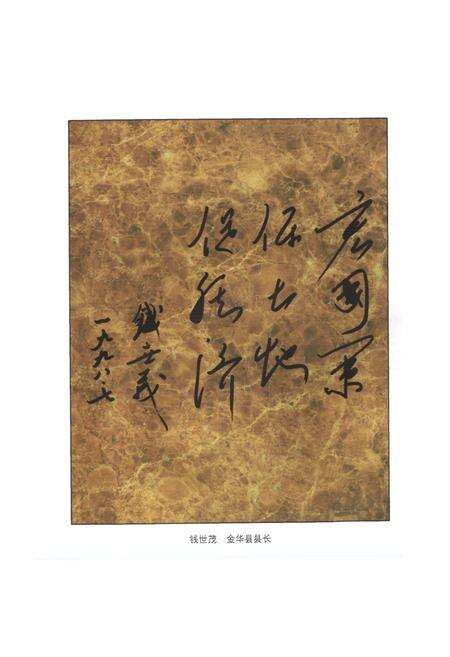 国
保土地
促经济
钱世茂
一九九八.七
钱世茂 金华县县长